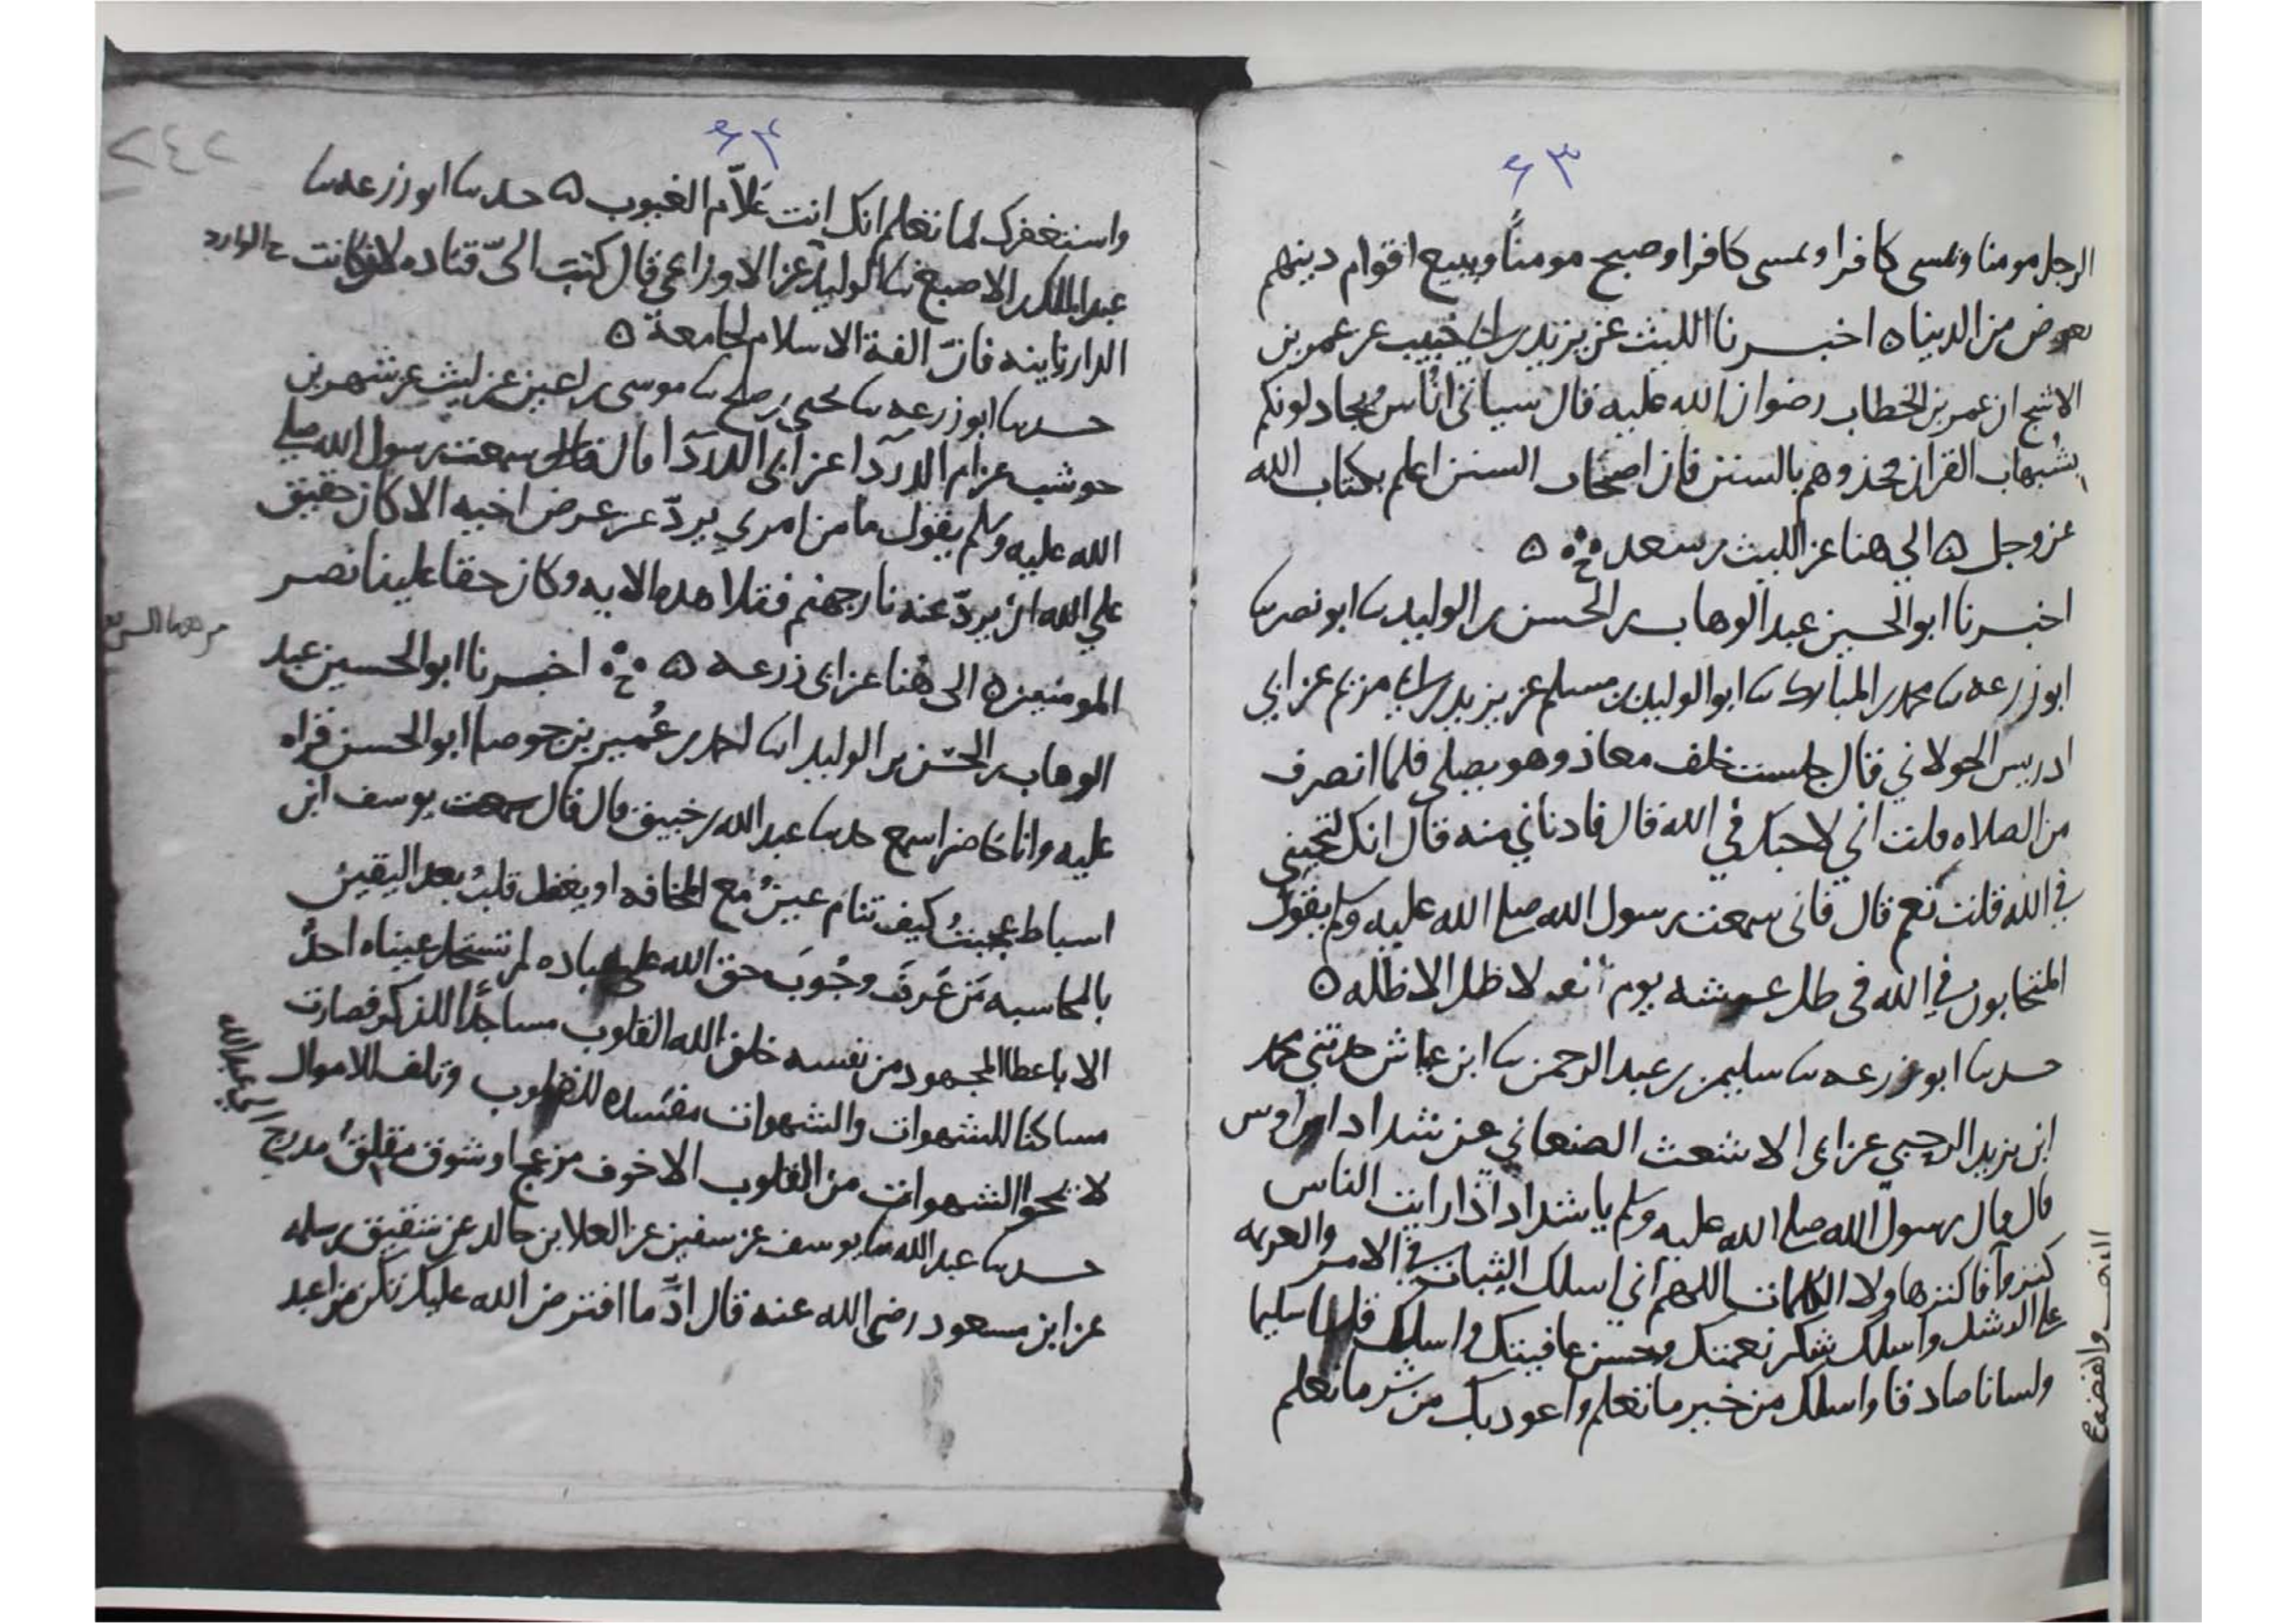 ٦٣
الرجل مومنا ويمسى كافرا ويمسى كافرا وصبح مومناً ويبيع اقوام دينهم
بعرض من الدنيا ه اخبرنا الليث عن يزيد بن ابي حبيب عن عمر بن
الاشج ان عمر بن الخطاب رضوان الله عليه قال سياتي اناس يجادلونكم
بشبهات القران فخذوهم بالسنن فان اصحاب السنن اعلم بكتاب الله
عز وجل ه الي هنا عن الليث بن سعد ه
اخبرنا ابو الحسين عبد الوهاب بن الحسن بن الوليد نا ابو نصر نا
ابو زرعه نا محمد بن المبارك نا ابو الوليد بن مسلم عن يزيد بن ابي مريم عن ابي
ادريس الخولاني قال جلست خلف معاذ وهو يصلي فلما انصرف
من الصلاه قلت اني لاحبك في الله قال فادناني منه قال انك لتحبني
في الله قلت نعم قال فاني سمعت رسول الله صلى الله عليه وسلم يقول
المتحابون في الله في ظل عرشه يوم لا ظل الا ظله ه
حدثنا ابو زرعه نا سليمن بن عبد الرحمن نا ابن عياش حدثني محمد
ابن يزيد الرحبي عن ابي الاشعث الصنعاني عن شداد ابن اوس
قال قال رسول الله صلى الله عليه وسلم يا شداد اذا رايت الناس
كنزوا فاكنز هاولا الكلمات اللهم اني اسلك الثبات في الامر والعزيمه
على الرشد واسلك شكر نعمتك وحسن عافيتك واسلك قلبا سليما
ولسانا صادقا واسلك من خير ما تعلم واعوذ بك من شر ما تعلم
٦٤
٢٤٢
واستغفرك لما تعلم انك انت علاّم الغيوب ه حدثنا ابو زرعه نا
عبد الملك بن الاصبغ نا الوليد عن الاوزاعي قال كتب اليّ قتاده لان كانت
الدار نايىه فان الفة الاسلام لجامعة ه
حدثنا ابو زرعه نا يحيى بن صلح نا موسى بن اعين عن ليث عن شهر بن
حوشب عن ام الدردآ عن ابي الدردآ قال قال سمعت رسول الله صلى
الله عليه وسلم يقول ما من امري يردّ عن عرض اخيه الا كان حقيق
علي الله ان يردّ عنه نار جهنم فتلا هذه الايه وكان حقا علينا نصر
المومنين ه الى هنا عن ابي زرعه ه اخبرنا ابو الحسين عبد
الوهاب بن الحسن بن الوليد انا احمد بن عُمير بن جوصا ابو الحسن قراه
عليه وانا حاضر اسمع حدثنا عبد الله بن خبيق قال قال سمعت يوسف ابن
اسباط عجبتُ كيف تنام عينٌ مع المخافه او يغفل قلبٌ بعد اليقين
بالمحاسبه مَن عَرفَ وجُوبَ حق الله على عباده لم تستحل عيناه احدٌ
الا باعطا المجهود من نفسه خلق الله القلوب مساجدًا للذكر فصارت
مساكنا للشهوات والشهوات مفسده للقلوب وتلف للاموال
لا يمحوا الشهوات من القلوب الا خوف مزعج او شوق مقلق
حدثنا عبد الله نا يوسف عن سفين عن العلا بن خالد عن شقيق بن سلمه
عن ابن مسعود رضي الله عنه قال ادّ ما افترض الله عليك تكن من اعبد